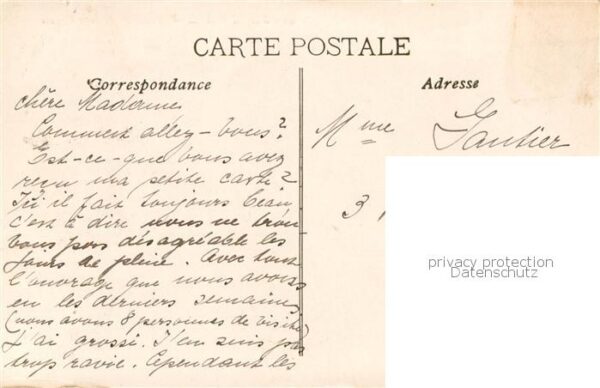 CARTE POSTALE
Correspondance
Adresse
chère Madame
Comment allez-vous?
Est-ce-que vous avez
reçu ma petite carte?
Ici il fait toujours beau
c'est à dire nous ne trou
vous pas désagréable les
jours de pluie. Avec tout
l'ouvrage que nous avons
eu les derniers semaines
(nous avons 8 personnes de visite)
j'ai grossi. J'en suis pas
trop ravie. Cependant les
Mme Gautier
3
privacy protection
Datenschutz